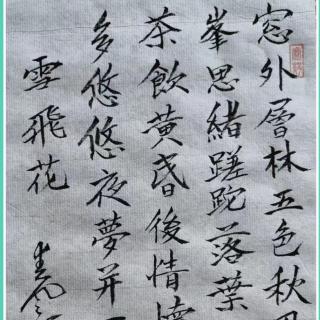 窓外層林五色秋
峯思緒蹉跎落葉
茶飲黃昏後情
多悠悠夜夢并
雪飛花